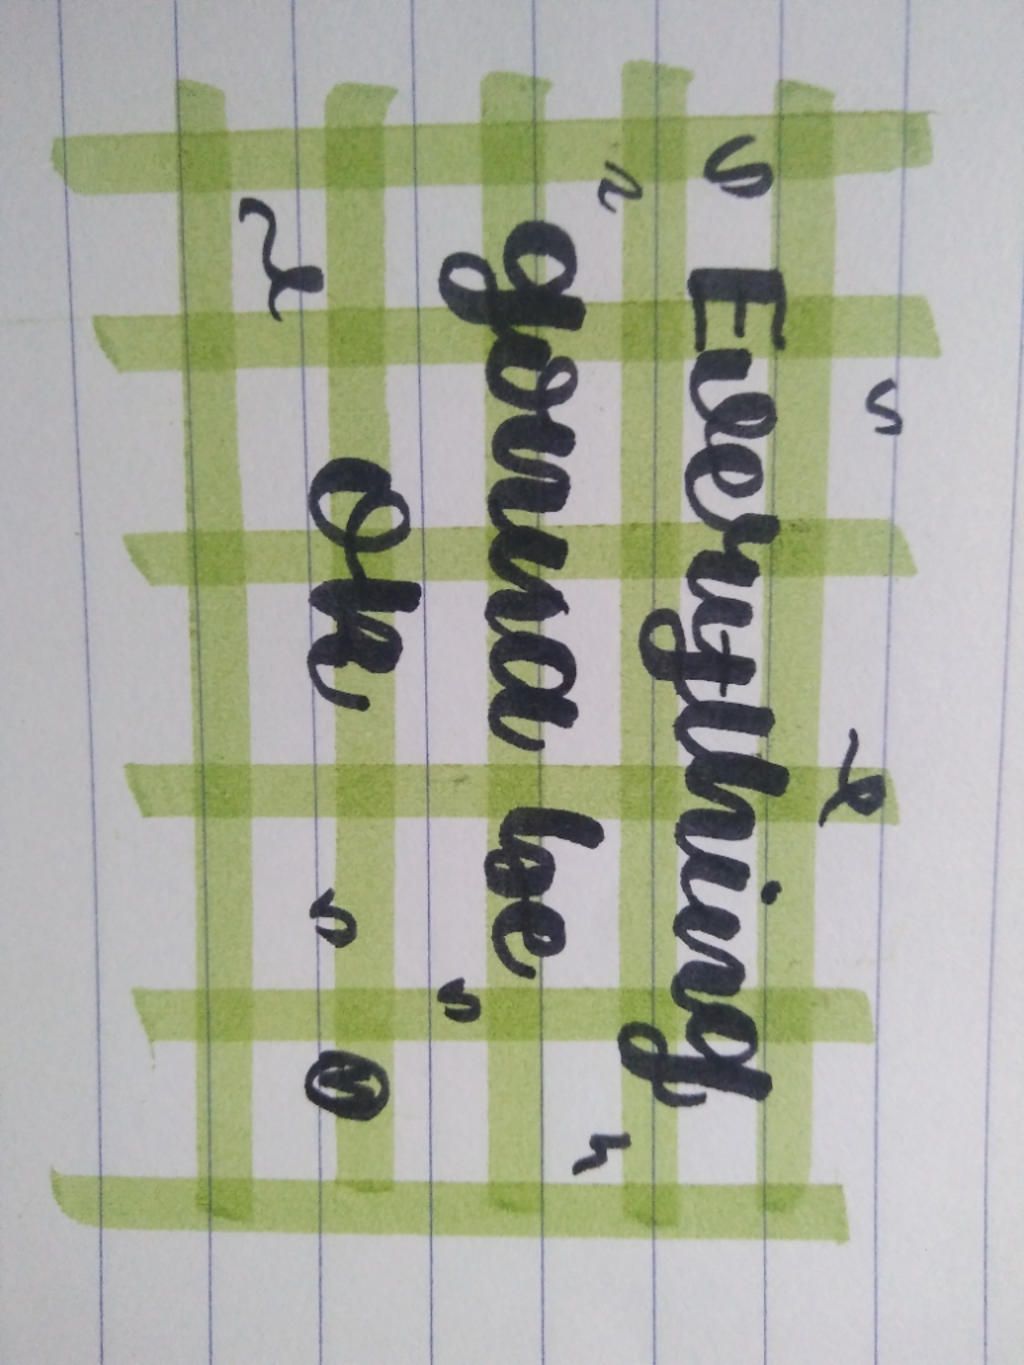 Everything
gonna be
Ok